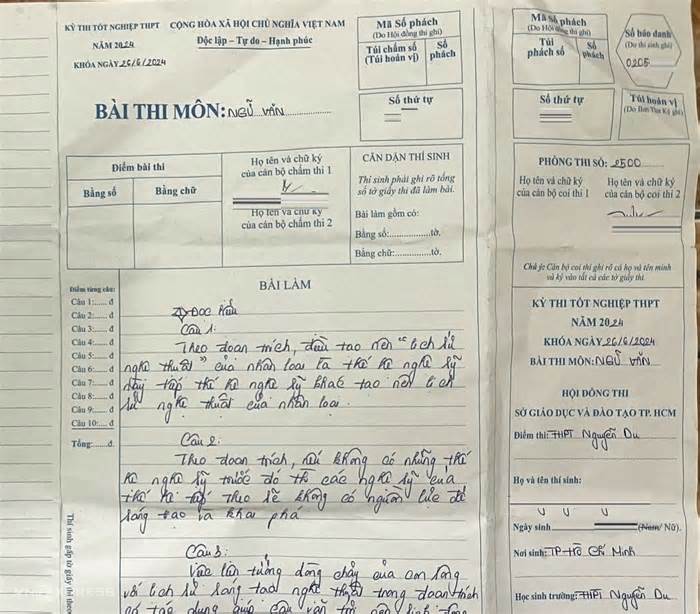 KỲ THI TỐT NGHIỆP THPT
NĂM 2024
KHÓA NGÀY 26/6/2024
CỘNG HÒA XÃ HỘI CHỦ NGHĨA VIỆT NAM
Độc lập - Tự do - Hạnh phúc
BÀI THI MÔN: NGỮ VĂN
Mã Số phách
(Do Hội đồng thi ghi)
Túi chấm số
(Túi hoán vị)
Số
phách
Số thứ tự
Điểm bài thi
Bằng số
Bằng chữ
Họ tên và chữ ký
của cán bộ chấm thi 1
Họ tên và chữ ký
của cán bộ chấm thi 2
CĂN DẶN THÍ SINH
Thí sinh phải ghi rõ tổng
số tờ giấy thi đã làm bài.
Bài làm gồm có:
Bằng số:..............tờ.
Bằng chữ:..............tờ.
Điểm từng câu:
Câu 1:...... đ
Câu 2:...... đ
Câu 3:...... đ
Câu 4:...... đ
Câu 5:...... đ
Câu 6:...... đ
Câu 7:...... đ
Câu 8:...... đ
Câu 9:...... đ
Câu 10:.... đ
Tổng:......đ.
Thí sinh gấp tờ giấy thi
BÀI LÀM
Đọc hiểu
Câu 1:
Theo đoạn trích, điều tạo nên "lịch sử
nghệ thuật" của nhân loại là thế hệ nghệ sỹ
này tiếp thế hệ nghệ sỹ khác tạo nên lịch
sử nghệ thuật của nhân loại.
Câu 2:
Theo đoạn trích, nếu không có những thế
hệ nghệ sỹ trước đó thì các nghệ sỹ của
thế hệ tiếp theo sẽ không có nguồn lực để
sáng tạo và khai phá
Câu 3:
Việc liên tưởng dòng chảy của con sông
với lịch sử sáng tạo nghệ thuật trong đoạn trích
có tác dụng giúp câu văn trở nên sinh động
Mã Số phách
(Do Hội đồng thi ghi)
Túi
phách số
Số
phách
Số báo danh
(Do thí sinh ghi)
0205
Số thứ tự
Túi hoán vị
PHÒNG THI SỐ: 2500
Họ tên và chữ ký
của cán bộ coi thi 1
Họ tên và chữ ký
của cán bộ coi thi 2
Chú ý: Cán bộ coi thi ghi rõ cả họ và tên mình
và ký vào tất cả các tờ giấy thi.
KỲ THI TỐT NGHIỆP THPT
NĂM 2024
KHÓA NGÀY 26/6/2024
BÀI THI MÔN: NGỮ VĂN
HỘI ĐỒNG THI
SỞ GIÁO DỤC VÀ ĐÀO TẠO TP. HCM
Điểm thi: THPT Nguyễn Du
Họ và tên thí sinh:
Ngày sinh
(Nam/ Nữ).
Nơi sinh: TP Hồ Chí Minh
Học sinh trường: THPT Nguyễn Du